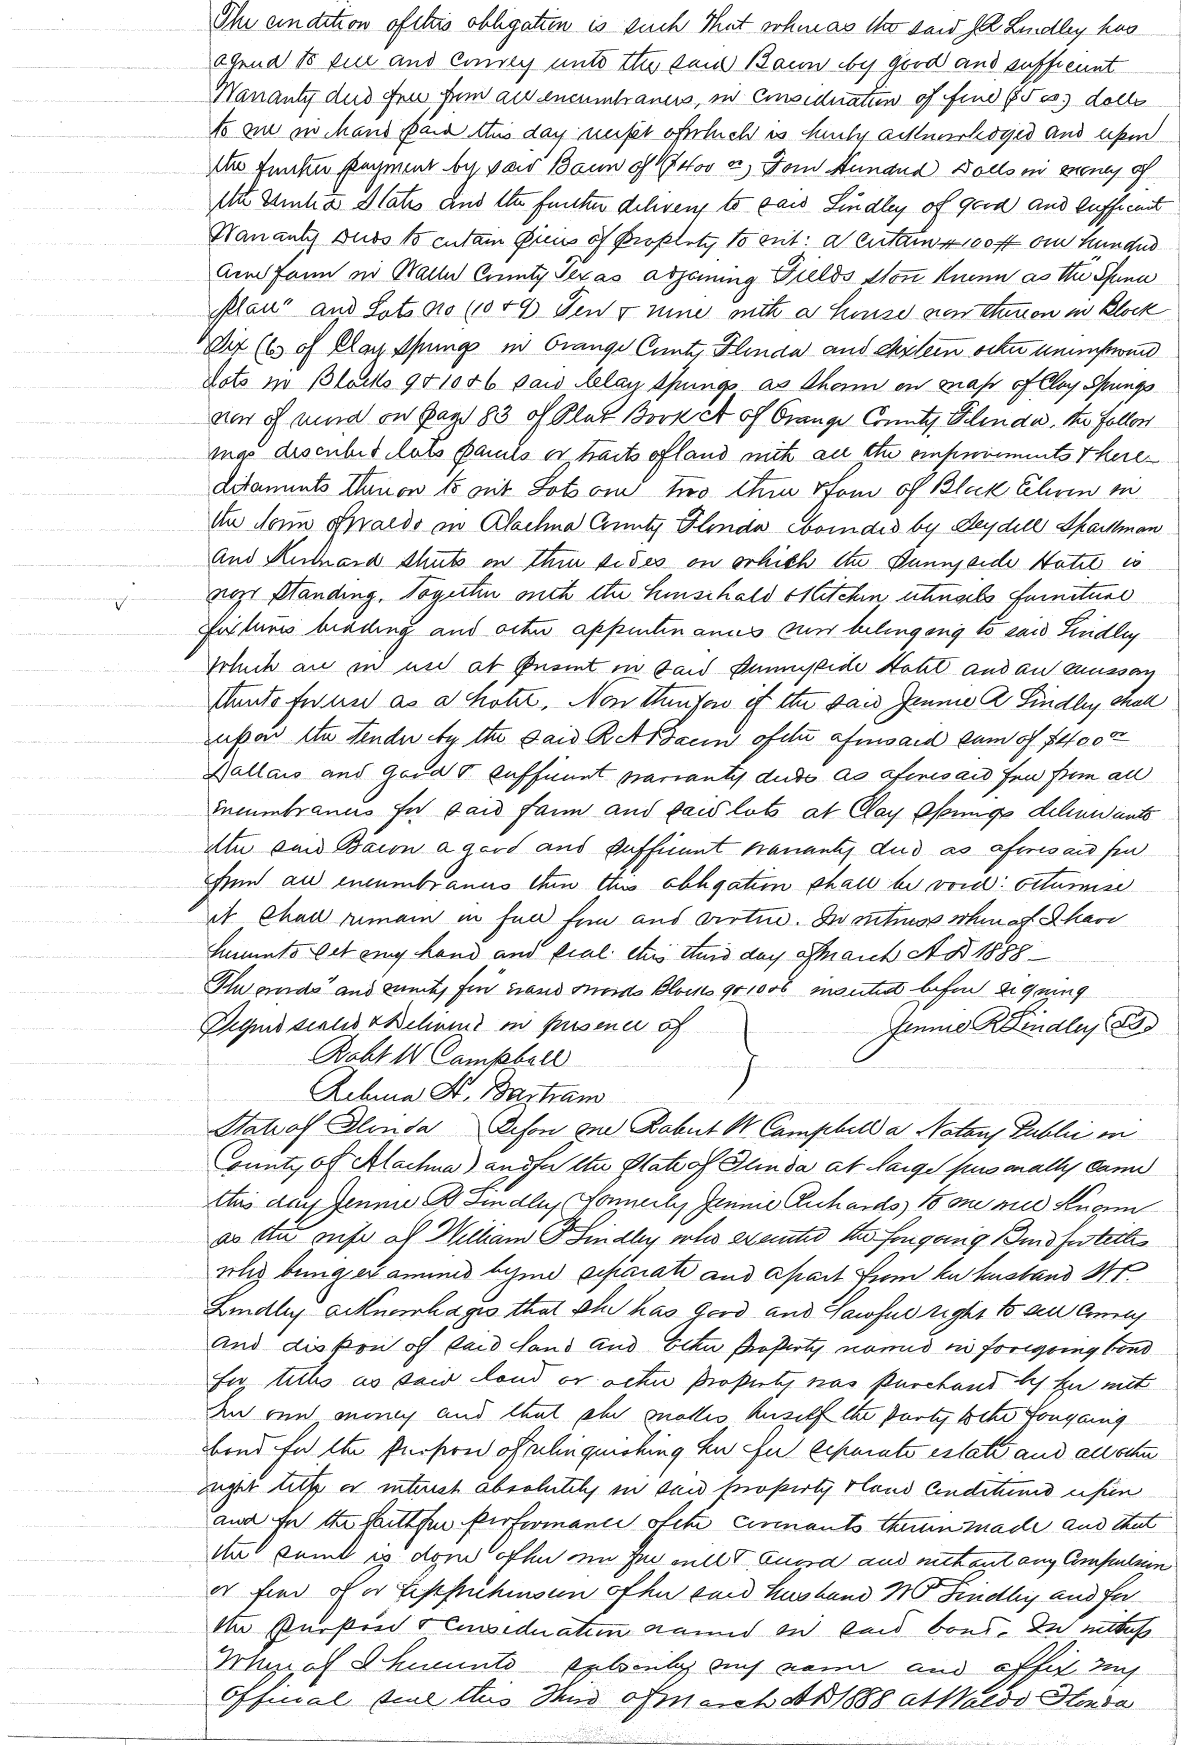 The condition of this obligation is such That whereas the said J R Lindley has
agreed to sell and convey unto the said Bacon by good and sufficient
Warranty deed free from all encumbrances, in consideration of five ($5 00) dolls
to me in hand paid this day receipt of which is hereby acknowledged and upon
the further payment by said Bacon of ($400 00) Four Hundred Dolls in money of
the United States and the further delivery to said Lindley of good and sufficient
Warranty Deeds to certain pieces of property to wit: a certain #100# one hundred
acre farm in Waller County Texas adjoining Fields Store known as the "Spence
place" and Lots no (10 & 9) Ten & nine with a house now thereon in Block
Six (6) of Clay Springs in Orange County Florida and sixteen other unimproved
Lots in Blocks 9 & 10 & 6 said Clay Springs as shown on map of Clay Springs
now of record on page 83 of Plat Book A of Orange County, Florida, the follow
ings described lots parcels or tracts of land with all the improvements & here-
ditaments thereon to wit Lots one two three & four of Block Eleven in
the Town of Waldo in Alachua County Florida bounded by Seydell Sparkman
and Kennard Streets on three sides on which the Sunnyside Hotel is
now Standing. Together with the household & Kitchen utensils furniture
fixtures bedding and other appurtenances now belonging to said Lindley
which are in use at present in said Sunnyside Hotel and are necessary
thereto for use as a hotel. Now therefore if the said Jennie R Lindley shall
upon the tender by the said R A Bacon of the aforesaid sum of $400 00
Dollars and good & sufficient warranty deeds as aforesaid free from all
incumbrances for said farm and said lots at Clay Springs deliver unto
the said Bacon a good and sufficient warranty deed as aforesaid free
from all encumbrances then this obligation shall be void: otherwise
it shall remain in full force and virtue. In witness whereof I have
hereunto set my hand and seal this third day of March A D 1888 —
The words "and seventy five" erased words Blocks 9 & 10 & 6 inserted before signing
Signed sealed & Delivered in presence of Jennie R Lindley (LS)
Robt W Campbell
A. Bartram
State of Florida Before me Robert W Campbell a Notary Public in
County of Alachua) and for the State of Florida at large personally came
this day Jennie R Lindley (formerly Jennie Richards) to me well Known
as the wife of William P Lindley who executed the foregoing Bond for titles
who being examined by me separate and apart from her husband W P.
Lindley acknowledges that she has good and lawful right to sell convey
and dispose of said land and other property named in foregoing bond
for titles as said land or other property was purchased by her with
her own money and that she makes herself the party to the foregoing
bond for the purpose of relinquishing her fee separate estate and all other
right title or interest absolutely in said property & land conditioned upon
and for the faithful performance of the covenants therein made and that
the same is done of her own free will & accord and without any compulsion
or fear of or apprehension of her said husband W P Lindley and for
the purpose & consideration named in said bond. In witness
Whereof I hereunto subscribe my name and affix my
official seal this third of March A D 1888 at Waldo Florida